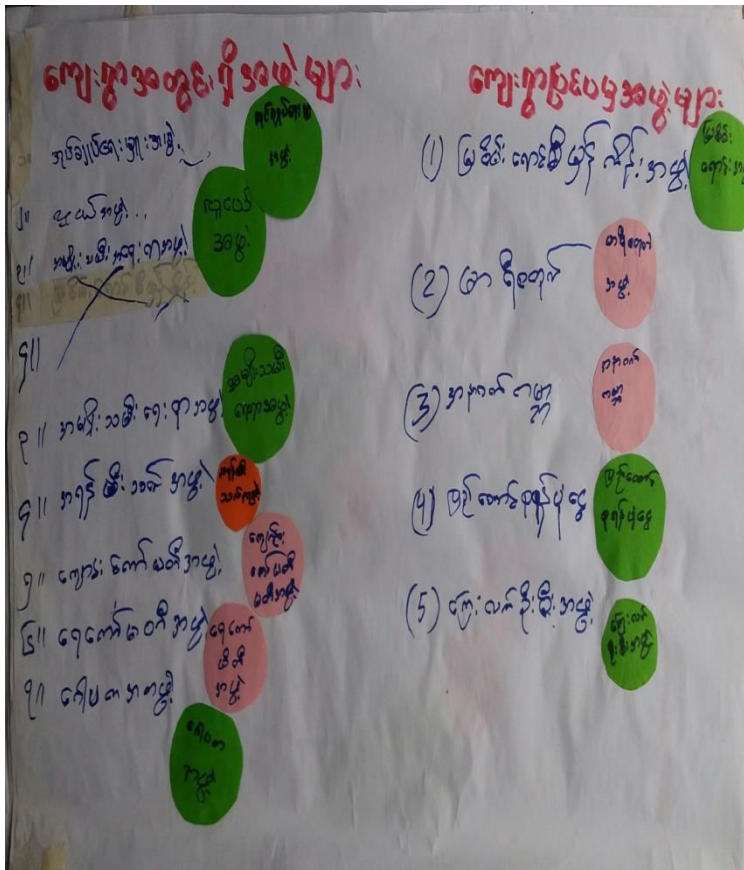 ကျေးရွာအတွင်းရှိအဖွဲ့များ
၁။ အုပ်ချုပ်ရေးမှူးအဖွဲ့
အုပ်ချုပ်ရေးမှူး
အဖွဲ့
၂။ လူငယ်အဖွဲ့
လူငယ်
အဖွဲ့
၃။ အမျိုးသမီးရေးရာအဖွဲ့
၄။
၃။ အမျိုးသမီးရေးရာအဖွဲ့
အမျိုးသမီး
ရေးရာအဖွဲ့
၄။ အရန်မီးသတ်အဖွဲ့
အရန်မီး
သတ်အဖွဲ့
၅။ ကျောင်းကော်မတီအဖွဲ့
ကျောင်း
ကော်မတီ
အဖွဲ့
၆။ ရေကော်မတီအဖွဲ့
ရေကော်
မတီ
အဖွဲ့
၇။ ဂေါပကအဖွဲ့
ဂေါပက
အဖွဲ့
ကျေးရွာပြင်ပမှအဖွဲ့များ
(၁) မြစိမ်းရောင်စီမံကိန်းအဖွဲ့
မြစိမ်း
ရောင်အဖွဲ့
(၂) မာရီစတုတ်
မာရီစတုတ်
အဖွဲ့
(၃) အနာဂတ်ကမ္ဘာ
အနာဂတ်
ကမ္ဘာ
(၄) မြည်တောင်စုရန်ပုံငွေ
မြည်တောင်
စုရန်ပုံငွေ
(၅) ကြေးလက်ဦးစီးအဖွဲ့
ကြေးလက်
ဦးစီးအဖွဲ့